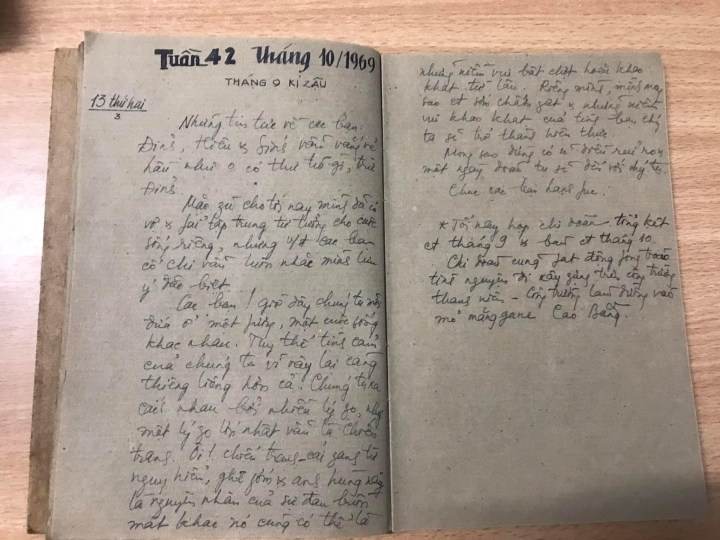 Tuần 42 tháng 10/1969
THÁNG 9 KỈ ZẬU
13 thứ hai
3
Những tin tức về các bạn.
Điṇh, Hiền & vẫn vắng vẻ
hầu như o có thư từ gì, trừ
Mão zù cho tới nay mình đã có
vợ & fải tập trung tư tưởng cho cuộc
sống riêng, nhưng các bạn
cố chi vẫn luôn nhắc mình lưu
ý đặc biệt.
Các bạn! giờ đây chúng ta mỗi
đứa ở một fương, một cuộc sống
khác nhau. Tuy thế tình cảm
của chúng ta vì vậy lại càng
thiêng liêng hơn cả. Chúng ta xa
cách nhau bởi nhiều lý zo, nhưng
một lý zo lớn nhất vẫn là chiến
tranh. Ôi! chiến tranh - cái zanh từ
nguy hiểm, ghê gớm & anh hùng
là nguyên nhân của sự đau buồn
mặt khác nó cũng có thể là
những niềm vui bất chợt hoài khao
khát từ lâu. Riêng mình, mình mong
sao ct sớm chấm zứt & những niềm
vui khao khát của từng bạn chúng
ta sẽ trở thành hiện thực.
Mong sao đừng có 1 điều rủi ro
một ngày đoàn tụ sẽ đến với chúng ta.
Chúc các bạn hạnh fúc.
* Tối nay họp chi đoàn tổng kết
ct tháng 9 & bàn ct tháng 10.
Chi đoàn cũng fát động fong trào
tình nguyện đi xây zựng trên công trường
thanh niên - Công trường làm đường vào
mỏ mănggane Cao Bằng.